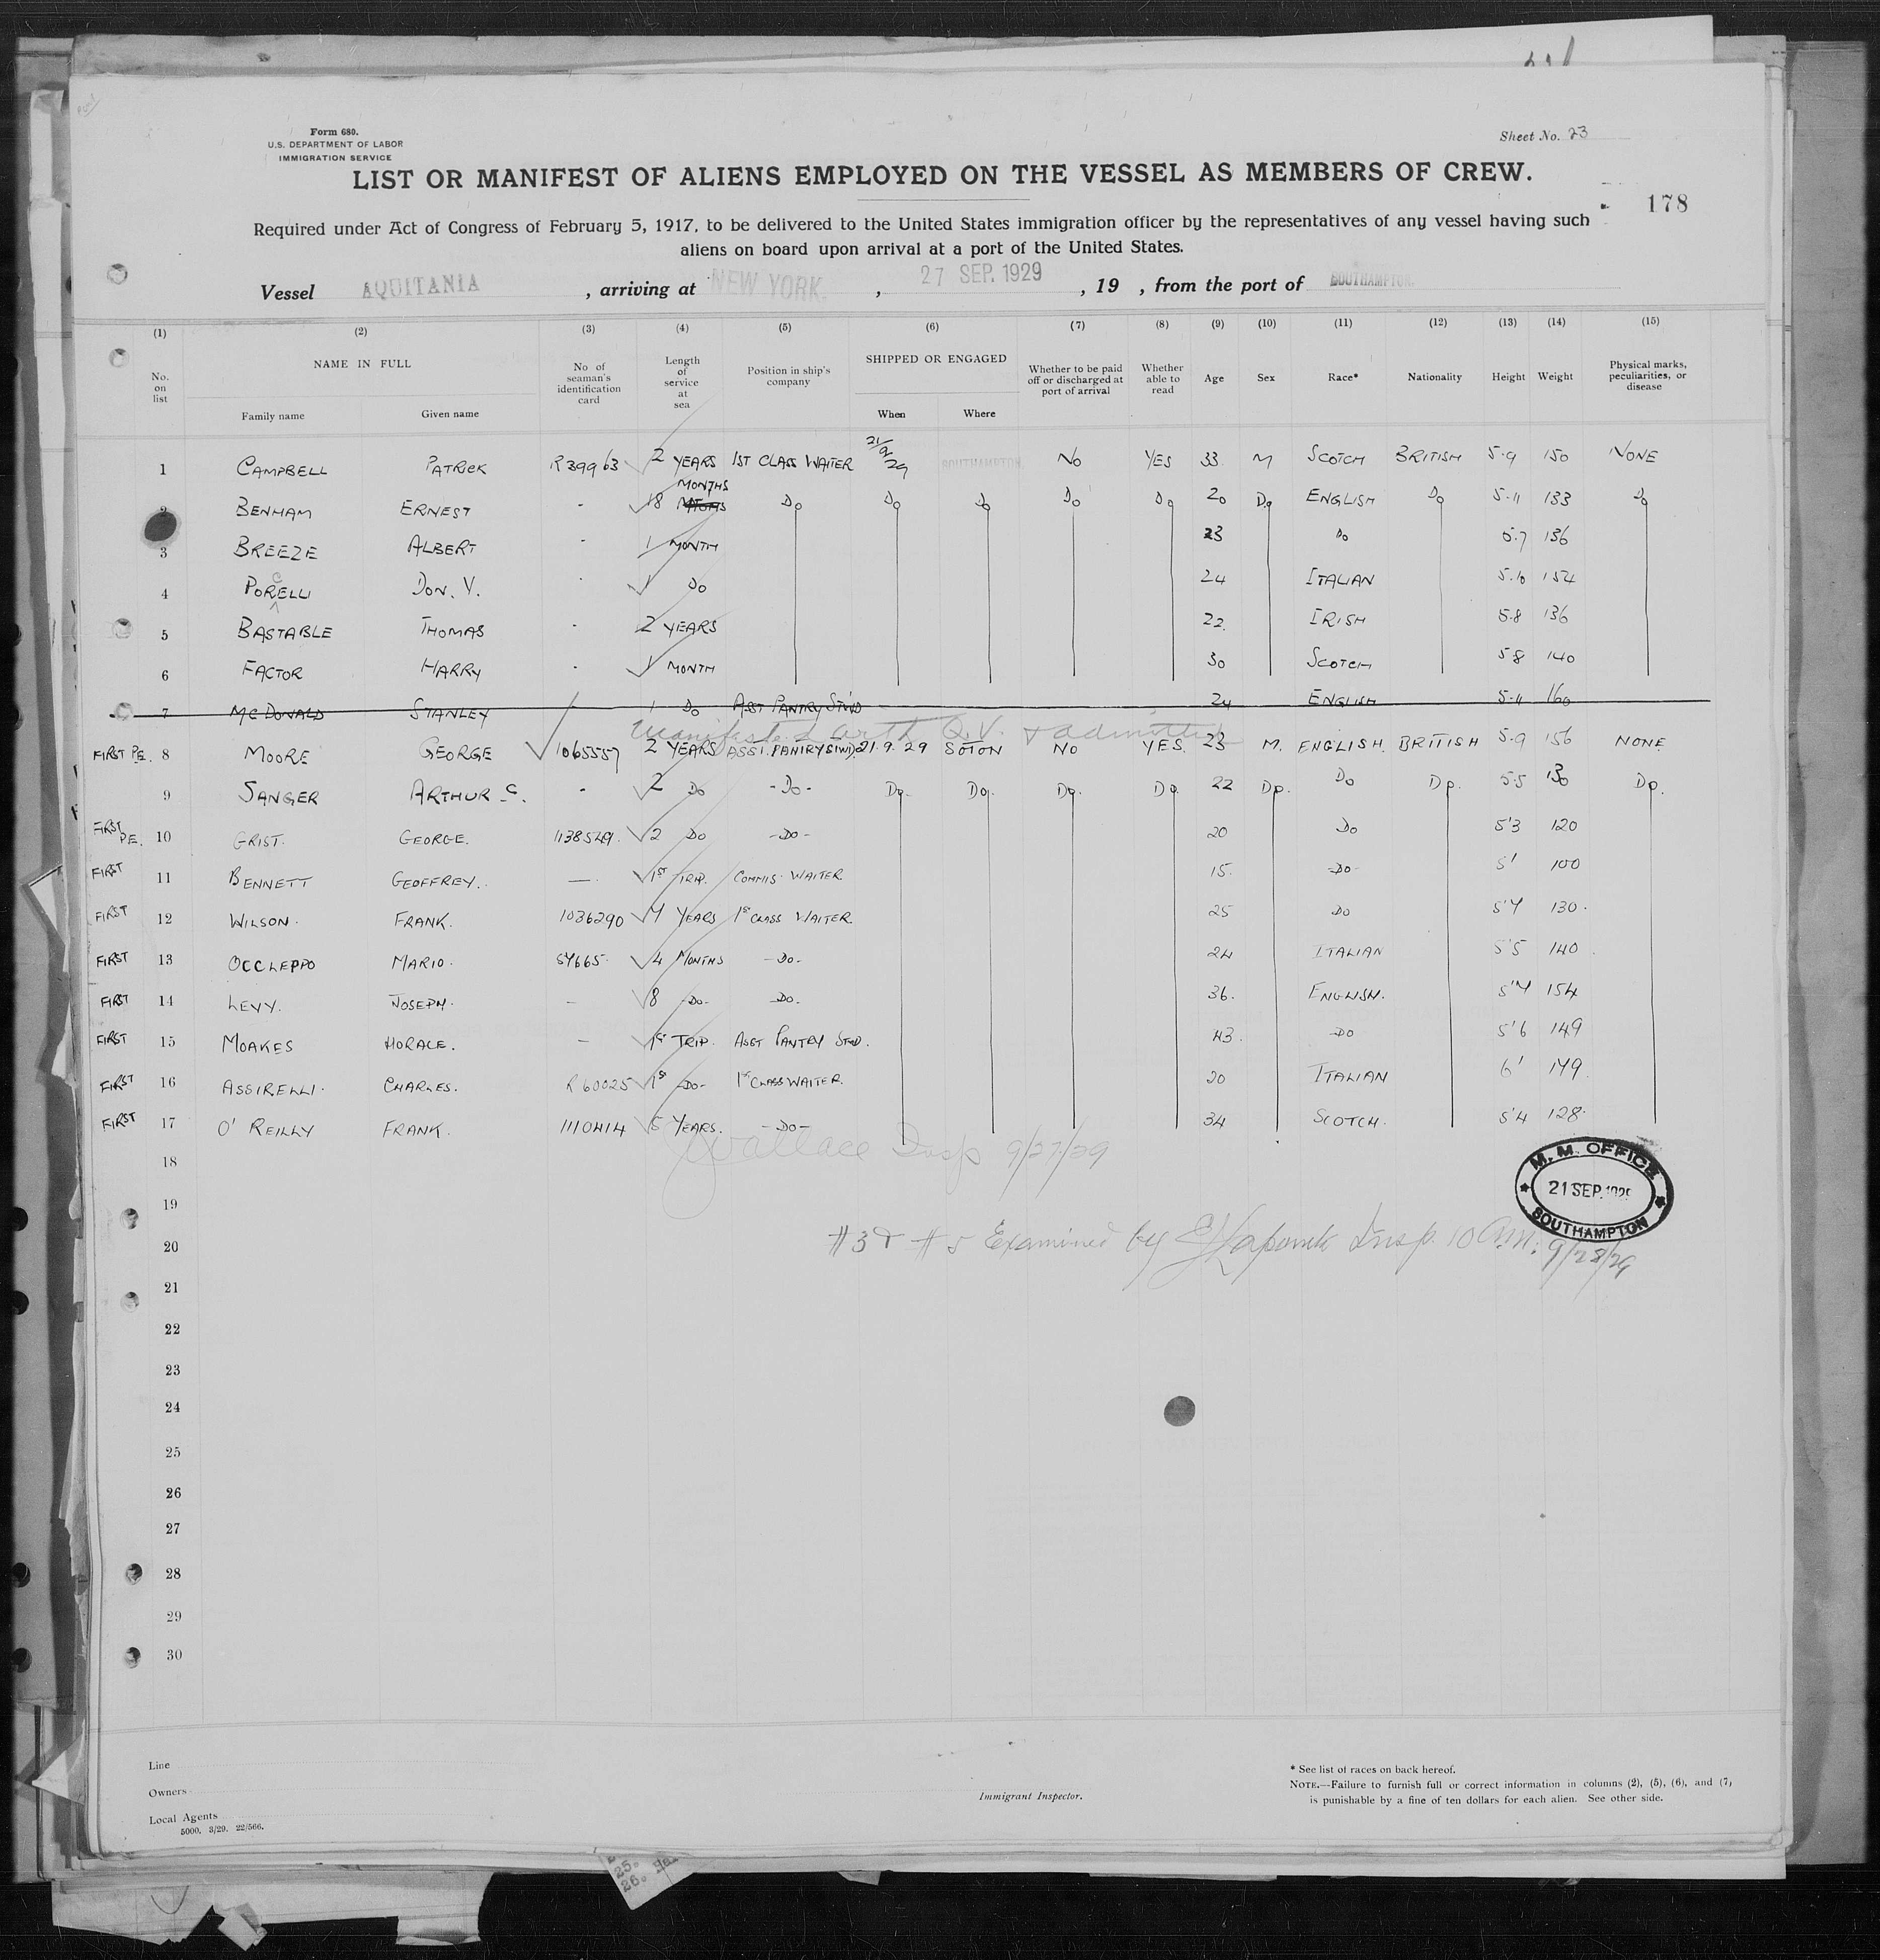 Form 680.
U.S. DEPARTMENT OF LABOR
IMMIGRATION SERVICE
Sheet No. 23
LIST OR MANIFEST OF ALIENS EMPLOYED ON THE VESSEL AS MEMBERS OF CREW.
178
Required under Act of Congress of February 5, 1917, to be delivered to the United States immigration officer by the representatives of any vessel having such
aliens on board upon arrival at a port of the United States.
Vessel AQUITANIA , arriving at NEW YORK. , 27 SEP. 1929 , 19 , from the port of SOUTHAMPTON.
(1) (2) (3) (4) (5) (6) (7) (8) (9) (10) (11) (12) (13) (14) (15)
No. on list NAME IN FULL Family name Given name No of seaman's identification card Length of service at sea Position in ship's company SHIPPED OR ENGAGED When Where Whether to be paid off or discharged at port of arrival Whether able to read Age Sex Race* Nationality Height Weight Physical marks, peculiarities, or disease
1 CAMPBELL PATRICK R39963 2 YEARS 1ST CLASS WAITER 21/9/29 SOUTHAMPTON. NO YES 33 M SCOTCH BRITISH 5.9 150 NONE
2 BENHAM ERNEST - 18 MONTHS DO DO DO DO DO 20 DO ENGLISH DO 5.11 133 DO
3 BREEZE ALBERT - 1 MONTH 23 DO 5.7 136
4 PORELLI DON. V. - 1 DO 24 ITALIAN 5.10 154
5 BASTABLE THOMAS - 2 YEARS 22 IRISH 5.8 136
6 FACTOR HARRY - 1 MONTH 30 SCOTCH 5.8 140
7 MCDONALD STANLEY 1 DO ASST PANTRY STWD 24 ENGLISH 5.11 160
Manifested with Q.V. & admitted
FIRST P.E. 8 MOORE GEORGE 1065557 2 YEARS ASST. PANTRY STWD. 21.9.29 SOTON NO YES. 23 M. ENGLISH. BRITISH 5.9 156 NONE
9 SANGER ARTHUR C. - 2 DO -DO- DO. DO. DO. DO. 22 DO. DO DO. 5.5 130 DO.
FIRST P.E. 10 GRIST. GEORGE. 1138549. 2 DO -DO- 20 DO 5'3 120
FIRST 11 BENNETT GEOFFREY. — 1ST TRIP. COMMIS WAITER. 15. -DO- 5' 100
FIRST 12 WILSON. FRANK. 1036290 YEARS 1ST CLASS WAITER. 25 DO 130.
FIRST 13 OCCLEPPO MARIO. 4 MONTHS -DO- 24 ITALIAN 5'5 140
FIRST 14 LEVY. JOSEPH. - 8 -DO- -DO- 36. ENGLISH. 154
FIRST 15 MOAKES HORACE. - 1ST TRIP. ASST PANTRY STWD. 43. -DO 5'6 149
FIRST 16 ASSIRELLI. CHARLES. R60025 1ST -DO- 1ST CLASS WAITER. 20 ITALIAN 6' 149.
FIRST 17 O'REILLY FRANK. 1110414 5 YEARS. -DO- 34 SCOTCH. 5'4 128.
18
Wallace Insp 9/27/29
M.M. OFFICE
21 SEP. 1929
SOUTHAMPTON
19
20 #3 & #5 Examined by Insp. 10 A.M. 9/28/29
21
22
23
24
25
26
27
28
29
30
Line
Owners
Local Agents
5000. 3/29. 22/566.
Immigrant Inspector.
* See list of races on back hereof.
NOTE.—Failure to furnish full or correct information in columns (2), (5), (6), and (7)
is punishable by a fine of ten dollars for each alien. See other side.
25.
26.